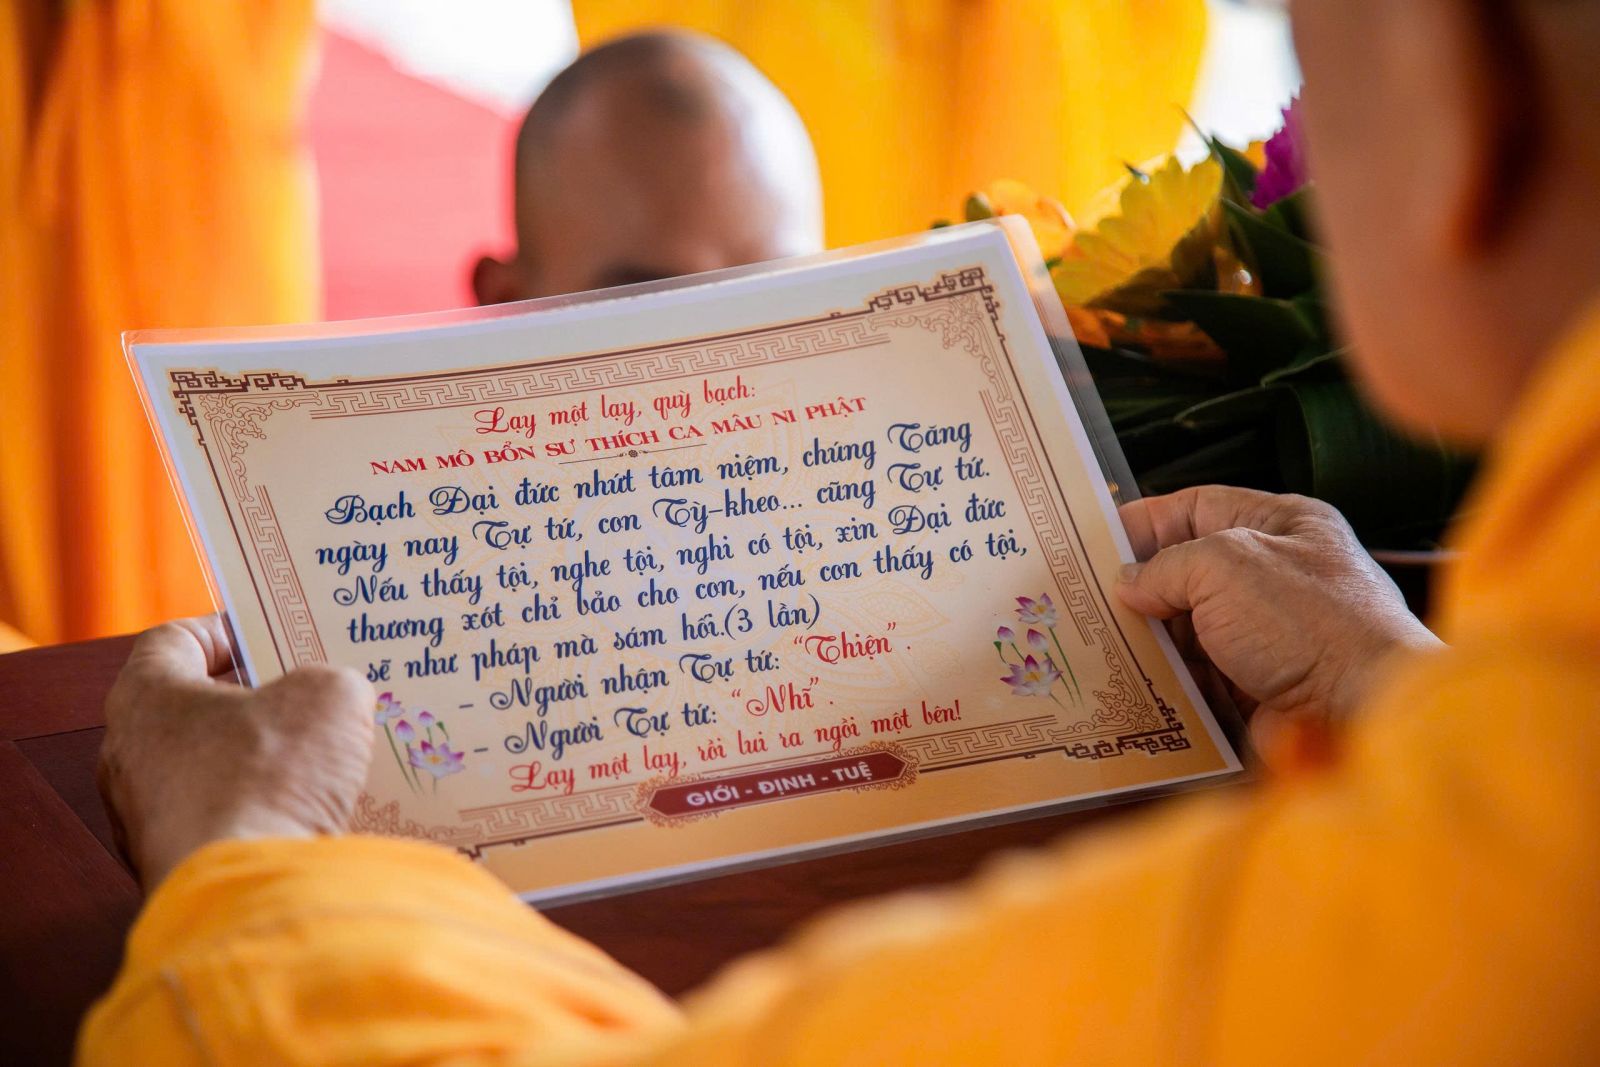 Lạy một lạy, quỳ bạch:
NAM MÔ BỔN SƯ THÍCH CA MÂU NI PHẬT
Bạch Đại đức nhứt tâm niệm, chúng Tăng
ngày nay Tự tứ, con Tỳ-kheo... cũng Tự tứ.
Nếu thấy tội, nghe tội, nghi có tội, xin Đại đức
thương xót chỉ bảo cho con, nếu con thấy có tội,
sẽ như pháp mà sám hối.(3 lần)
- Người nhận Tự tứ: “Thiện”.
- Người Tự tứ: “Nhĩ”.
Lạy một lạy, rồi lui ra ngồi một bên!
GIỚI - ĐỊNH - TUỆ